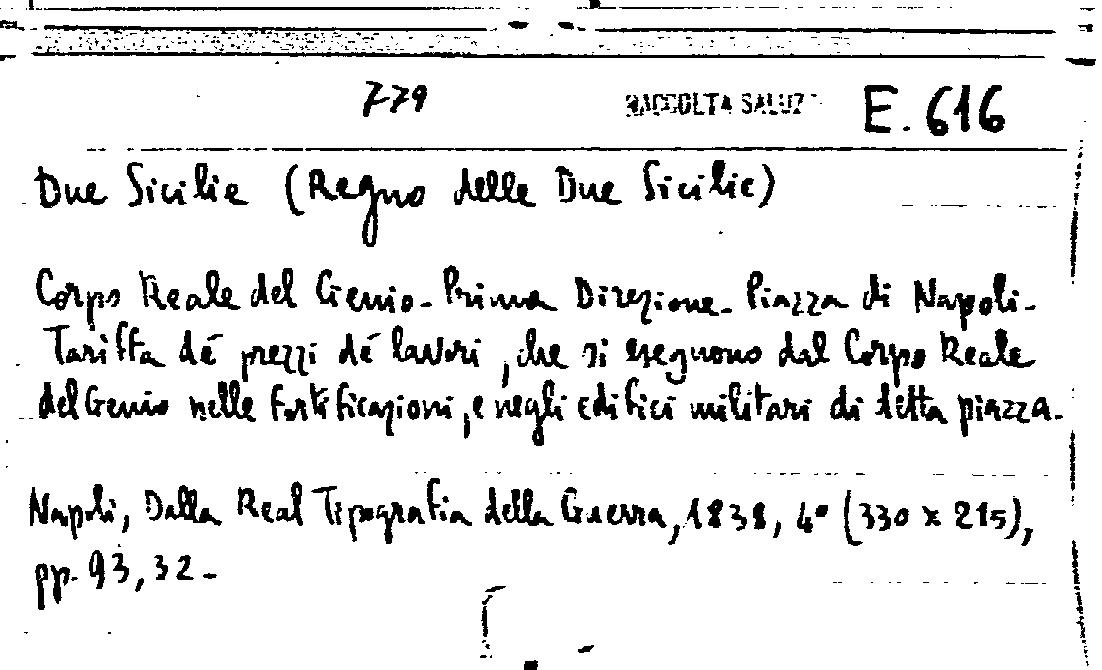 779 RACCOLTA SALUZ E. 616
Due Sicilie (Regno delle Due Sicilie)
Corpo Reale del Genio - Prima Direzione - Piazza di Napoli -
Tariffa de' prezzi de' lavori, che si eseguono dal Corpo Reale
del Genio nelle fortificazioni, e negli edifici militari di detta piazza -
Napoli, Dalla Real Tipografia della Guerra, 1838, 4° (330 x 215),
pp. 93, 32 -